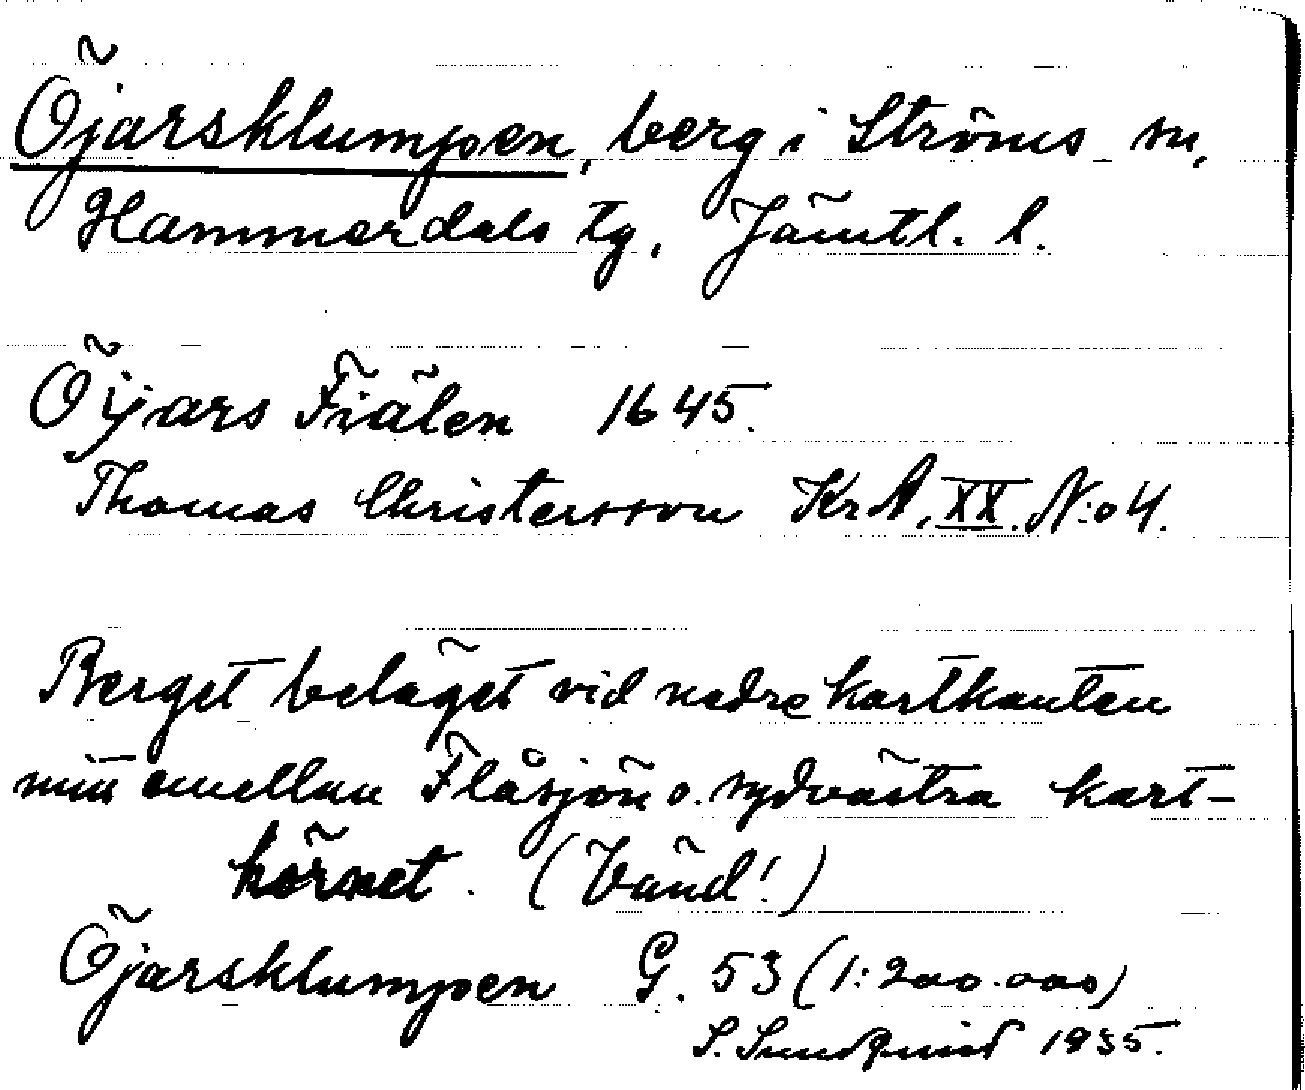 Öjarsklumpen, berg i Ströms sn,
Hammerdals tg, Jämtl. l.
Öijars Fiälen 1645.
Thomas Christersson KrA, XX. N:o 4.
Berget beläget vid nedre kartkanten
mitt emellan Flåsjön o. sydvästra kart-
hörnet. (Vänd!)
Öjarsklumpen G. 53 (1:200.000)
S. Sundquist 1935.